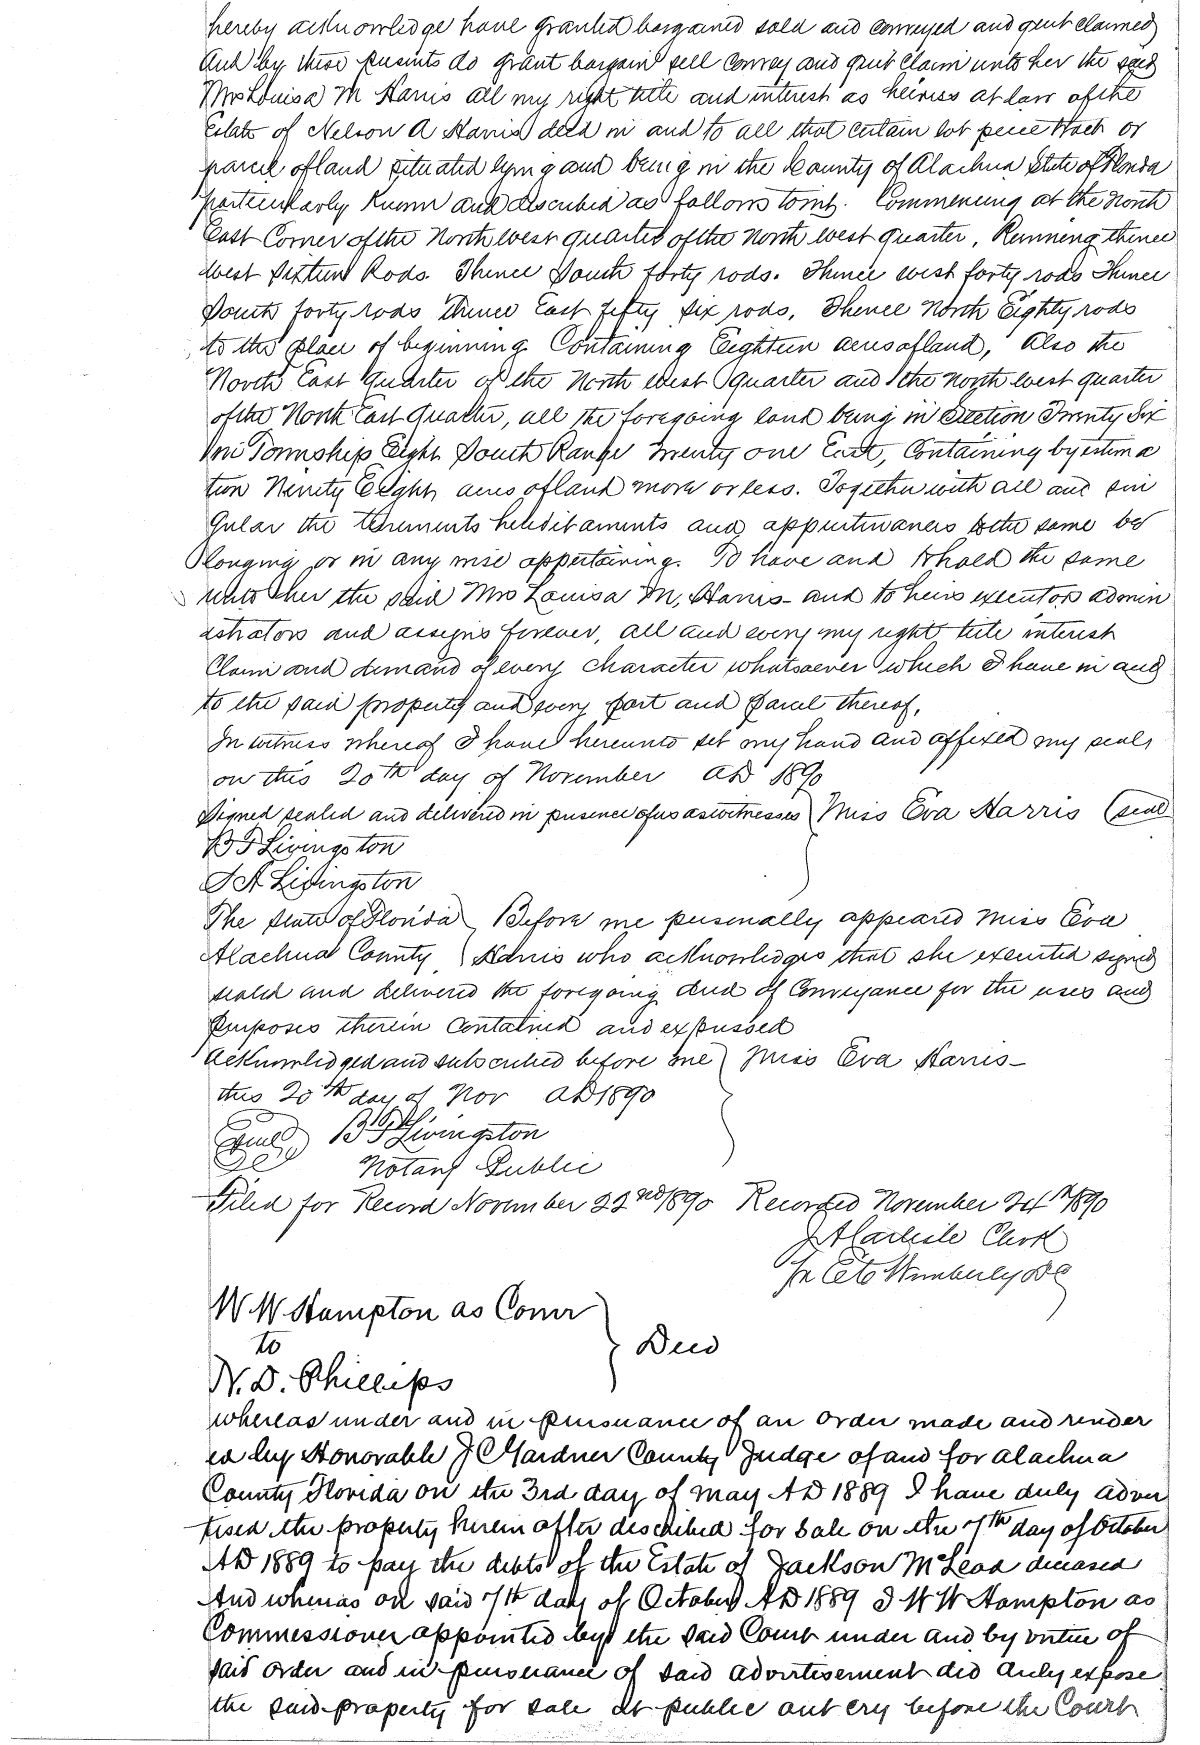 hereby acknowledge have granted bargained sold and conveyed and quit claimed
And by these presents do grant bargain sell convey and quit claim unto her the said
Mrs Louisa M Harris all my right title and interest as heiress at law of the
Estate of Nelson A Harris decd in and to all that certain lot peice track or
parcel of land situated lying and being in the County of Alachua State of Florida
particularly known and described as follows towit. Commencing at the North
East Corner of the North west quarter of the North west quarter, Running thence
west Sixteen Rods. Thence South forty rods. Thence west forty rods Thence
South forty rods thence East fifty six rods, Thence North Eighty rods
to the place of beginning Containing Eighteen acres of land, Also the
North East quarter of the North west quarter and the north west quarter
of the North East Quarter, all the foregoing land being in Section Twenty Six
in Township Eight South Range Twenty one East, Containing by estima
tion Ninety Eight acres of land more or less. Together with all and sin
gular the tenements hereditaments and appurtenances to the same be
longing or in any wise appertaining. To have and to hold the same
unto her the said Mrs Louisa M, Harris and to heirs executors admin
istrators and assigns forever, all and every my right title interest
Claim and demand of every character whatsoever which I have in and
to the said property and every part and parcel thereof.
In witness whereof I have hereunto set my hand and affixed my seals
on this 20th day of November AD 1890
Signed sealed and delivered in presence of us as witnesses } Miss Eva Harris (seal
B F Livingston
T A Livingston
The State of Florida } Before me personally appeared Miss Eva
Alachua County } Harris who acknowledges that she executed signed
sealed and delivered the foregoing deed of Conveyance for the uses and
purposes therein contained and expressed
Acknowledged and subscribed before me } Miss Eva Harris
this 20th day of Nov AD 1890
B F Livingston
Notary Public
Filed for Record November 22nd 1890 Recorded November 24th 1890
J A Carlisle Clerk
Wimberly DC
W W Hampton as Comr
to } Deed
N. D. Phillips
whereas under and in pursuance of an order made and render
ed by Honorable J C Gardner County Judge of and for Alachua
County Florida on the 3rd day of May AD 1889 I have duly adver
tised the property herein after described for Sale on the 7th day of October
AD 1889 to pay the debts of the Estate of Jackson McLeod deceased
And whereas on said 7th day of October AD 1889 I W W Hampton as
Commissioner appointed by the said Court under and by virtue of
said order and in pursuance of said advertisement did duly expose
the said property for sale at public out cry before the Court